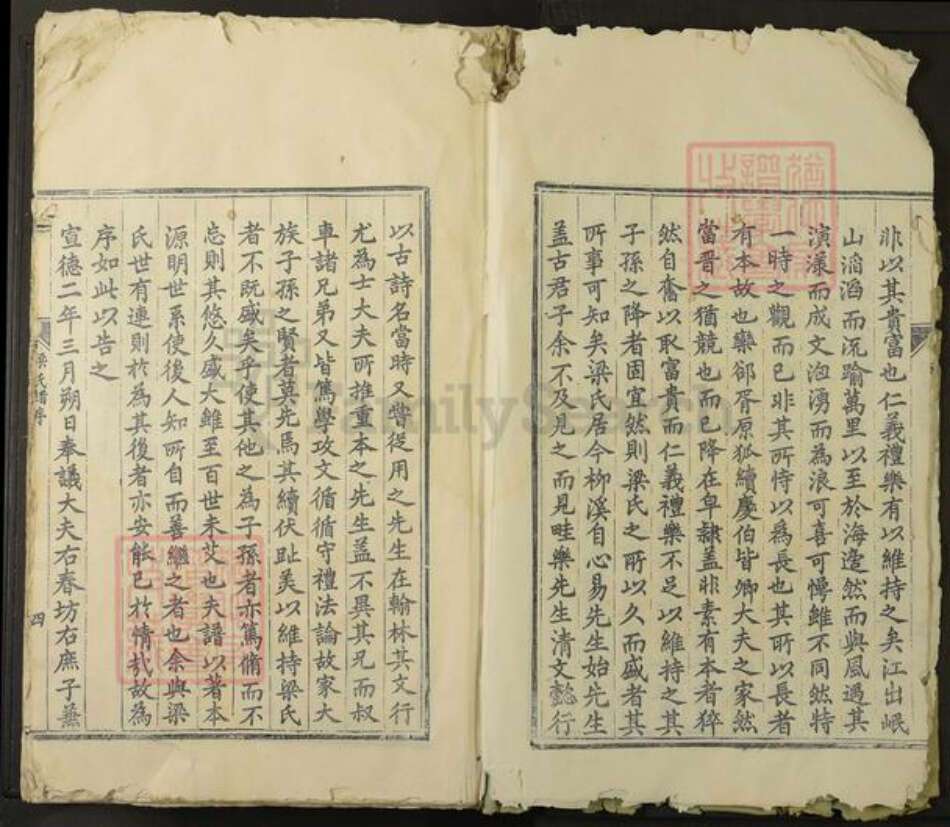 非以其貴富也仁義禮樂有以維持之矣江出岷
山滔滔而流踰萬里以至於海遙然而與風遇其
演漾而成文洶湧而為浪可喜可愕雖不同然特
一時之觀而已非其所恃以為長也其所以長者
有本故也欒郤胥原狐續慶伯皆卿大夫之家然
當晋之猶競也而已降在皁隸蓋非素有本者猝
然自奮以取富貴而仁義禮樂不足以維持之其
子孫之降者固宜然則梁氏之所以久而盛者其
所事可知矣梁氏居今柳溪自心易先生始先生
盖古君子余不及見之而見畦樂先生清文懿行
以古詩名當時又嘗從用之先生在翰林其文行
尤為士大夫所推重本之先生盖不異其兄而叔
車諸兄弟又皆篤學攻文循循守禮法論故家大
族子孫之賢者莫先焉其續伏趾美以維持梁氏
者不既盛矣乎使其他之為子孫者亦篤脩而不
忘則其悠久盛大雖至百世未艾也夫譜以著本
源明世系使後人知所自而善繼之者也余與梁
氏世有連則於為其後者亦安能已於情哉故為
序如此以告之
宣德二年三月朔日奉議大夫右春坊右庶子蕪
梁氏譜序
四
FamilySearch